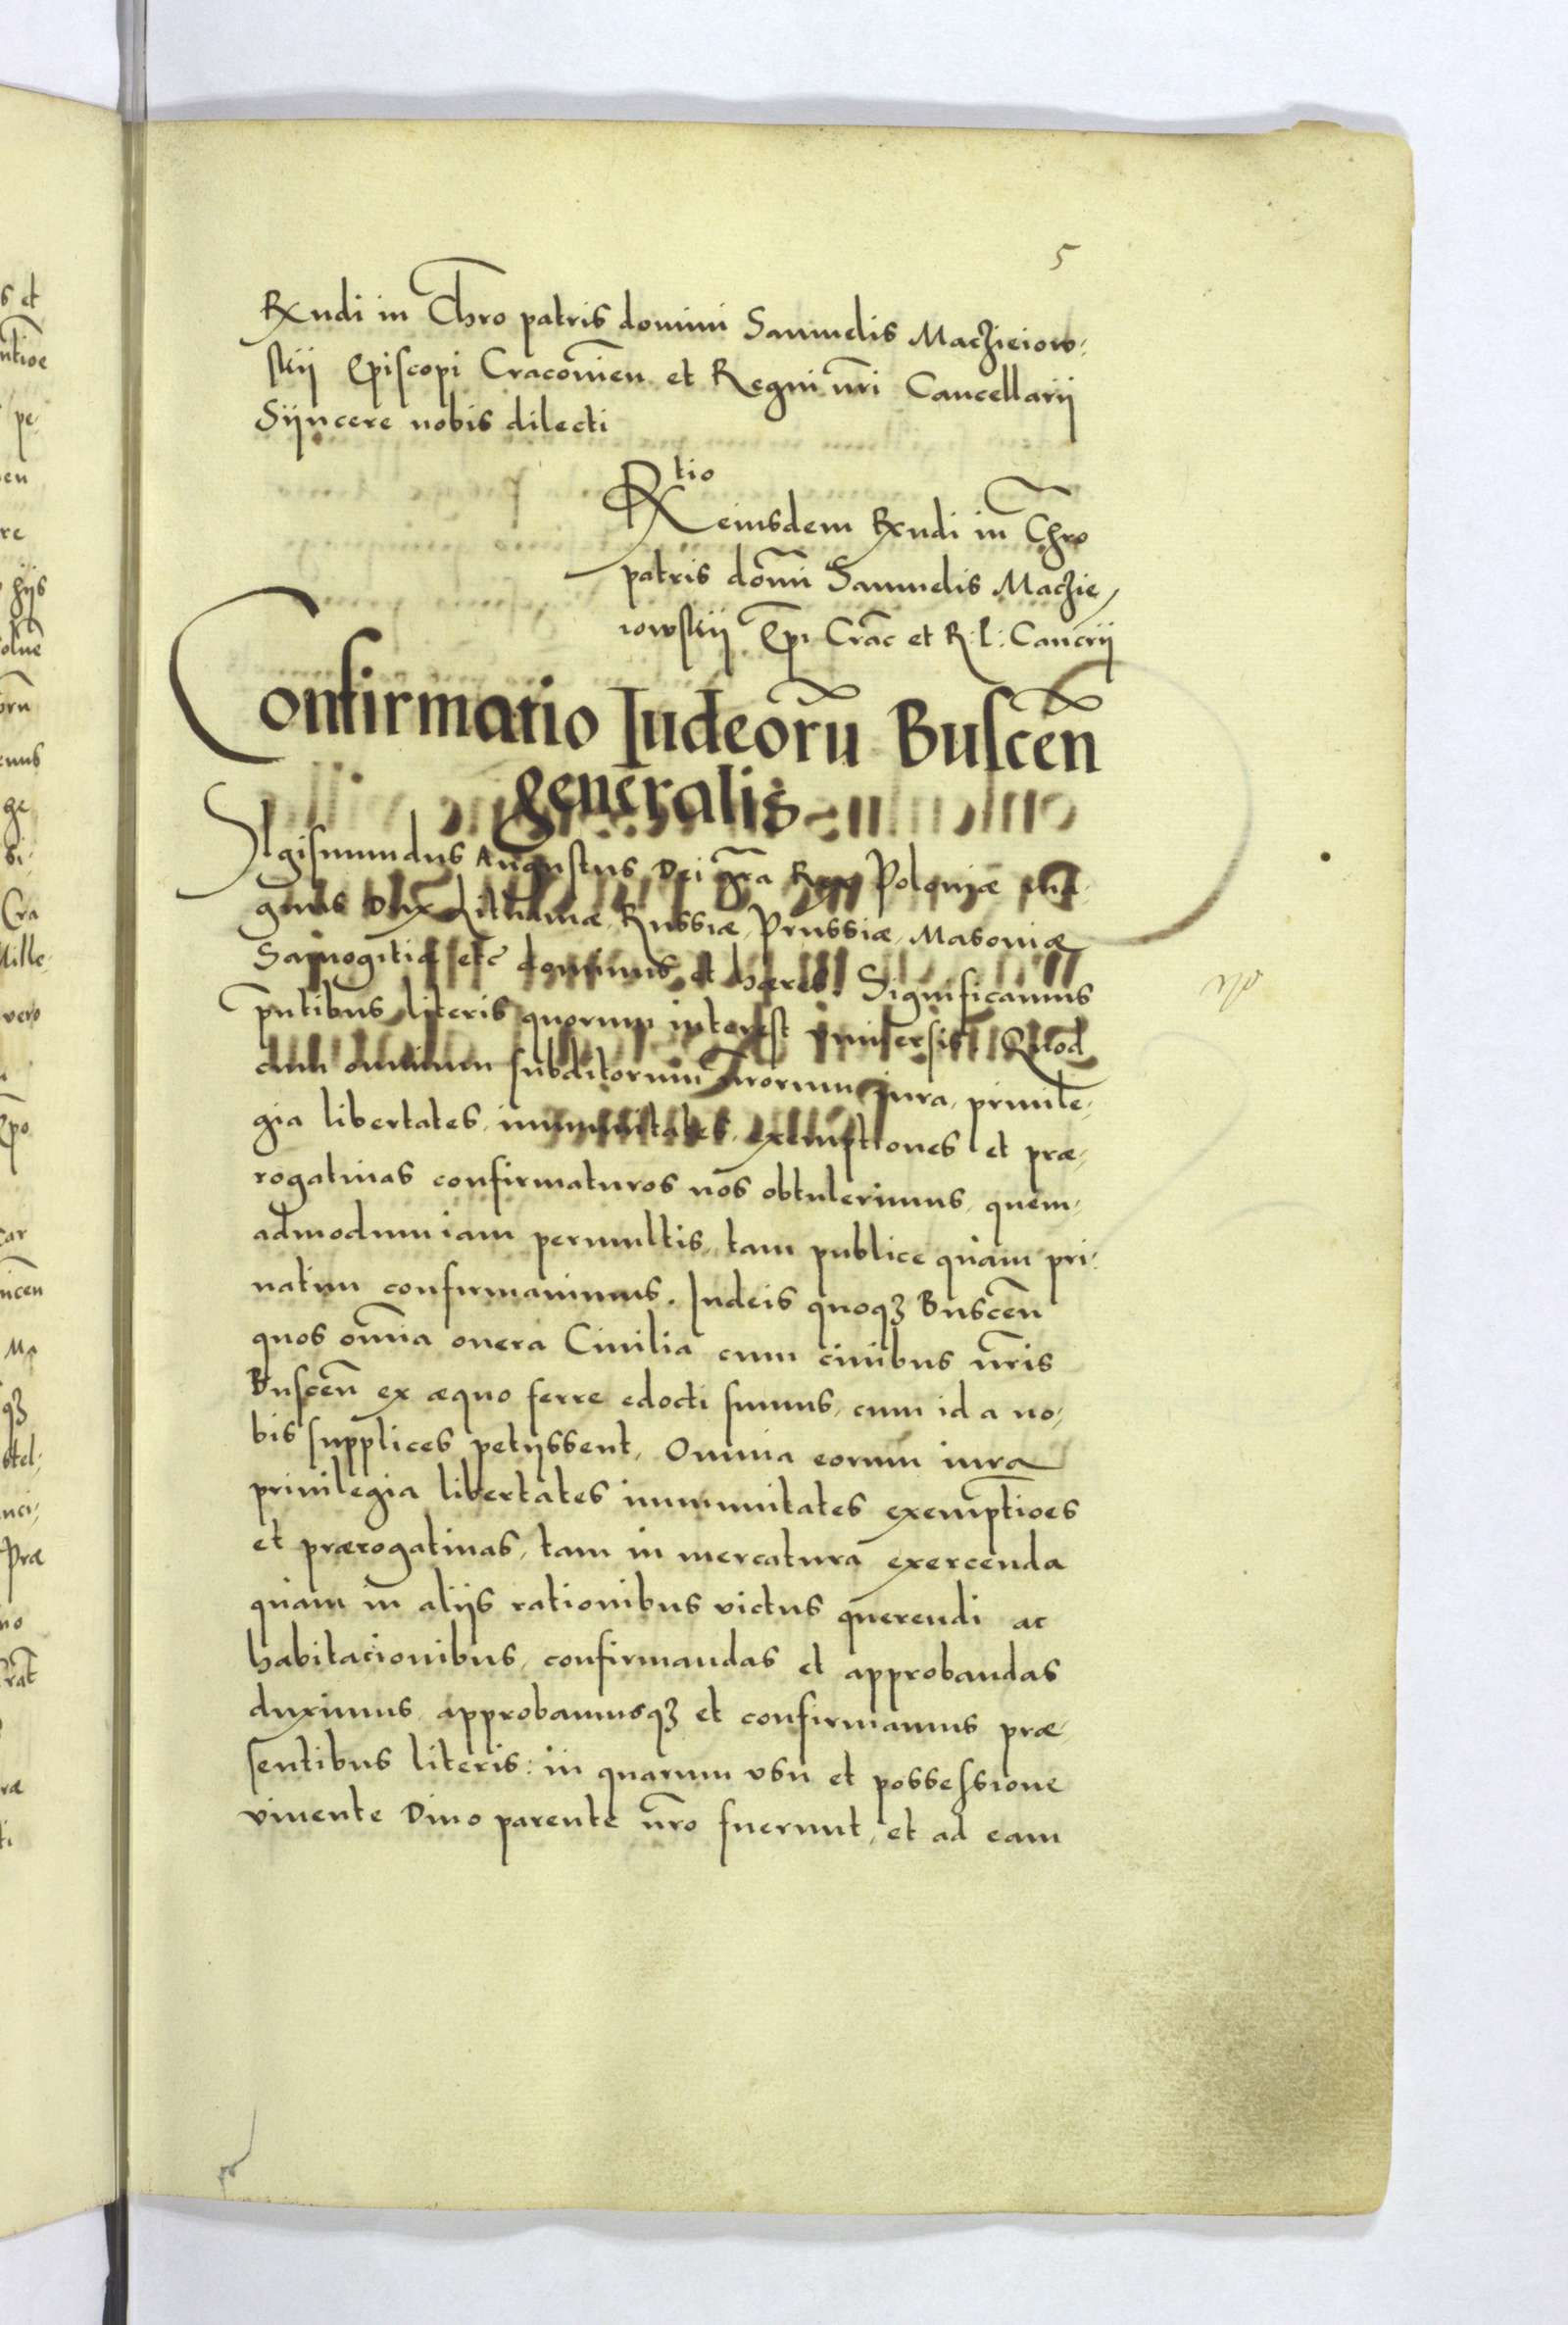 5
Rxndi in Chro patris domini Samuelis Maczieiow-
skij Episcopi Cracovien et Regni nri Cancellarij
Sijncere nobis dilecti
Rtio
eiusdem Rxndi in Chro
patris domi Samuelis Maczie-
iowskij Epi Crac et R: P: Cancrij
Confirmatio Iudeoru Buscen
generalis
Sigismundus Augustus Dei gra Rex Poloniæ ma-
gnus Dux Lithuaniæ, Russiæ, Prussiæ, Masoniæ
Samogitiæ etc dominus et hæres. Significamus
pntibus literis quorum interest vniuersis. Quod
cum omnium subditorum nrorum iura, priuile-
gia libertates, immunitates, exemptiones et præ-
rogatiuas confirmaturos nos obtulerimus, quem-
admodum iam permultis, tam publice quam pri-
uatim confirmauimus. Iudeis quoqz Buscen
quos omnia onera Ciuilia cum ciuibus nris
Buscen ex æquo ferre edocti sumus, cum id a no-
bis supplices petijssent, Omnia eorum iura
priuilegia libertates immunitates exemptioes
et prærogatiuas, tam in mercatura exercenda
quam in alijs rationibus victus querendi ac
habitacionibus, confirmandas et approbandas
duximus, approbamusqz et confirmamus præ-
sentibus literis: in quarum vsu et possessione
viuente Diuo parente nro fuerunt, et ad eam